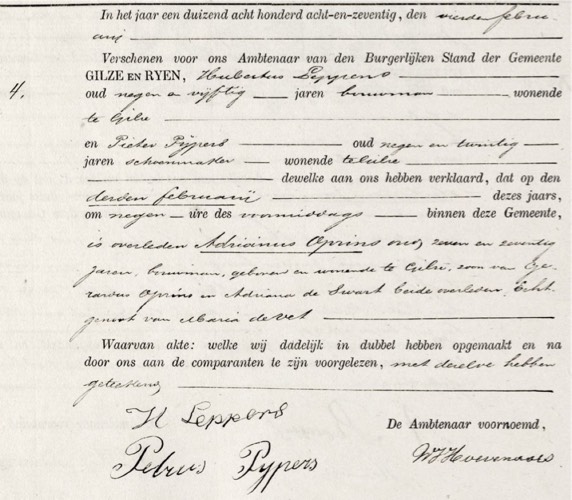 In het jaar een duizend acht honderd acht-en-zeventig, den vierden febru
arij
Verschenen voor ons Ambtenaar van den Burgerlijken Stand der Gemeente
4.
GILZE EN RYEN, Hubertus Leppens
oud negen en vijftig jaren bouwman wonende
te Gilze
en Pieter Pijpers oud negen en twintig
jaren schoenmaker wonende te Gilze
dewelke aan ons hebben verklaard, dat op den
derden februarij dezes jaars,
om negen ure des voormiddags binnen deze Gemeente,
is overleden Adrianus Oprins oud zeven en zeventig
jaren, bouwman, geboren en wonende te Gilze, zoon van Ge-
rardus Oprins en Adriana de Swart beide overleden. Echt
genoot van Maria de Vet
Waarvan akte: welke wij dadelijk in dubbel hebben opgemaakt en na
door ons aan de comparanten te zijn voorgelezen, met dezelve hebben
geteekend
H Leppers
De Ambtenaar voornoemd,
Petrus Pypers